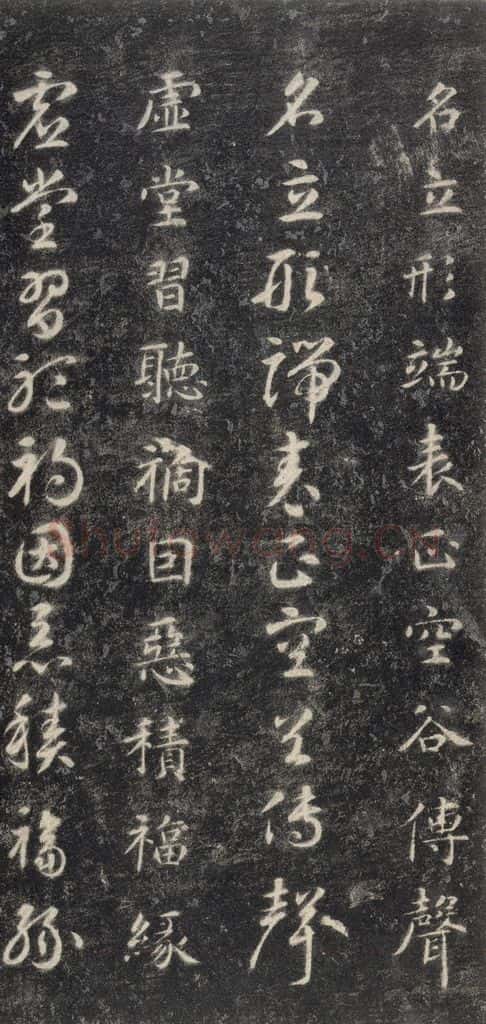 名立形端表正空谷傳聲
名立形端表正空谷傳聲
虛堂習聽禍因惡積福緣
虛堂習聽禍因惡積福緣
Shufawang.cn